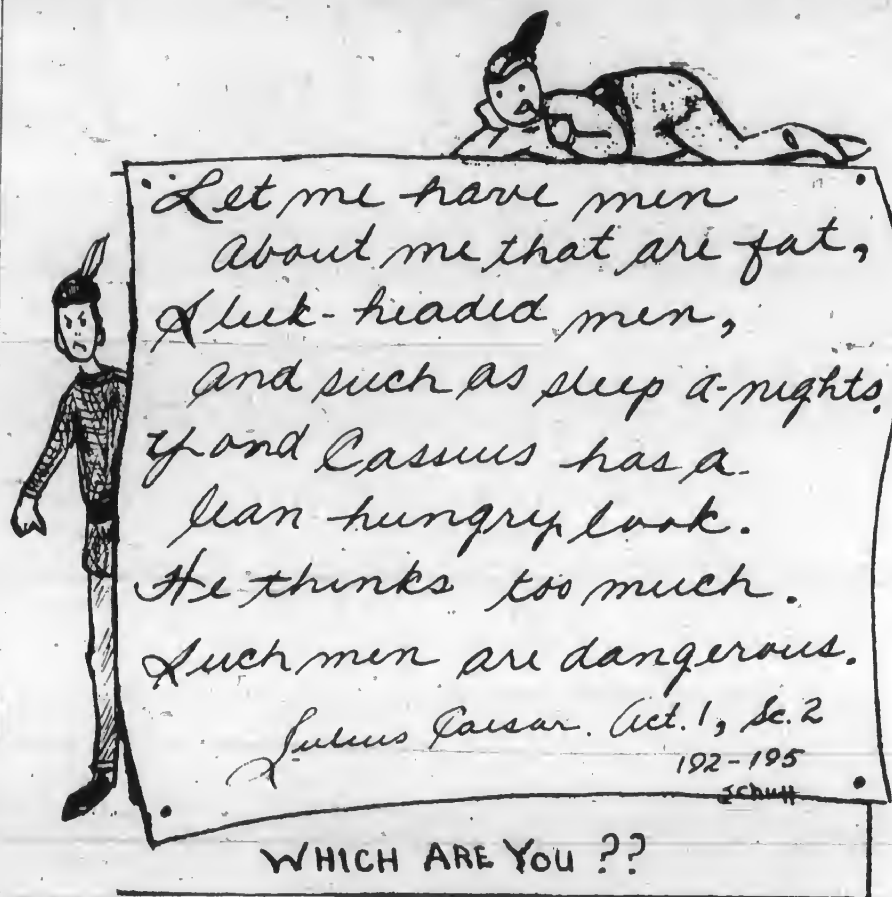 Let me have men
About me that are fat,
Sleek-headed men,
and such as sleep a-nights.
Yond Cassius has a
lean hungry look.
He thinks too much.
Such men are dangerous.
Julius Caesar. Act. 1, Sc. 2
192-195
Schutt
WHICH ARE YOU ??